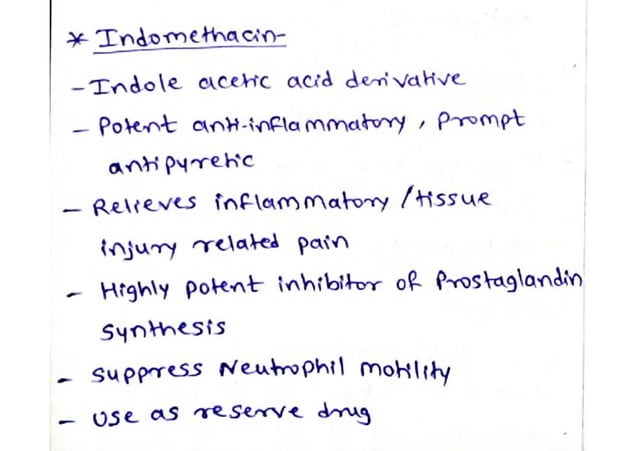 * Indomethacin-
- Indole acetic acid derivative
- Potent anti-inflammatory, Prompt
antipyretic
- Relieves inflammatory/tissue
injury related pain
- Highly potent inhibitor of Prostaglandin
synthesis
- suppress Neutrophil motility
- use as reserve drug